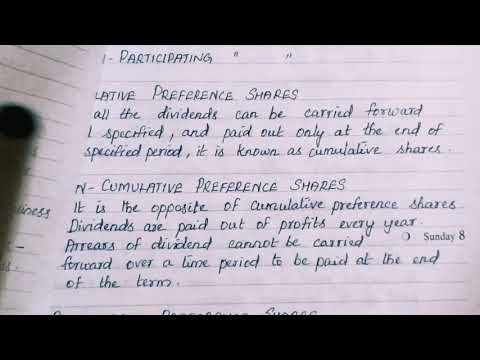 1 - PARTICIPATING " "
LATIVE PREFERENCE SHARES
all the dividends can be carried forward
l specified, and paid out only at the end of
specified period, it is known as cumulative shares.
N - CUMULATIVE PREFERENCE SHARES
It is the opposite of cumulative preference shares
Dividends are paid out of profits every year.
Arrears of dividend cannot be carried
Sunday 8
forward over a time period to be paid at the end
of the term.
PREFERENCE SHARES